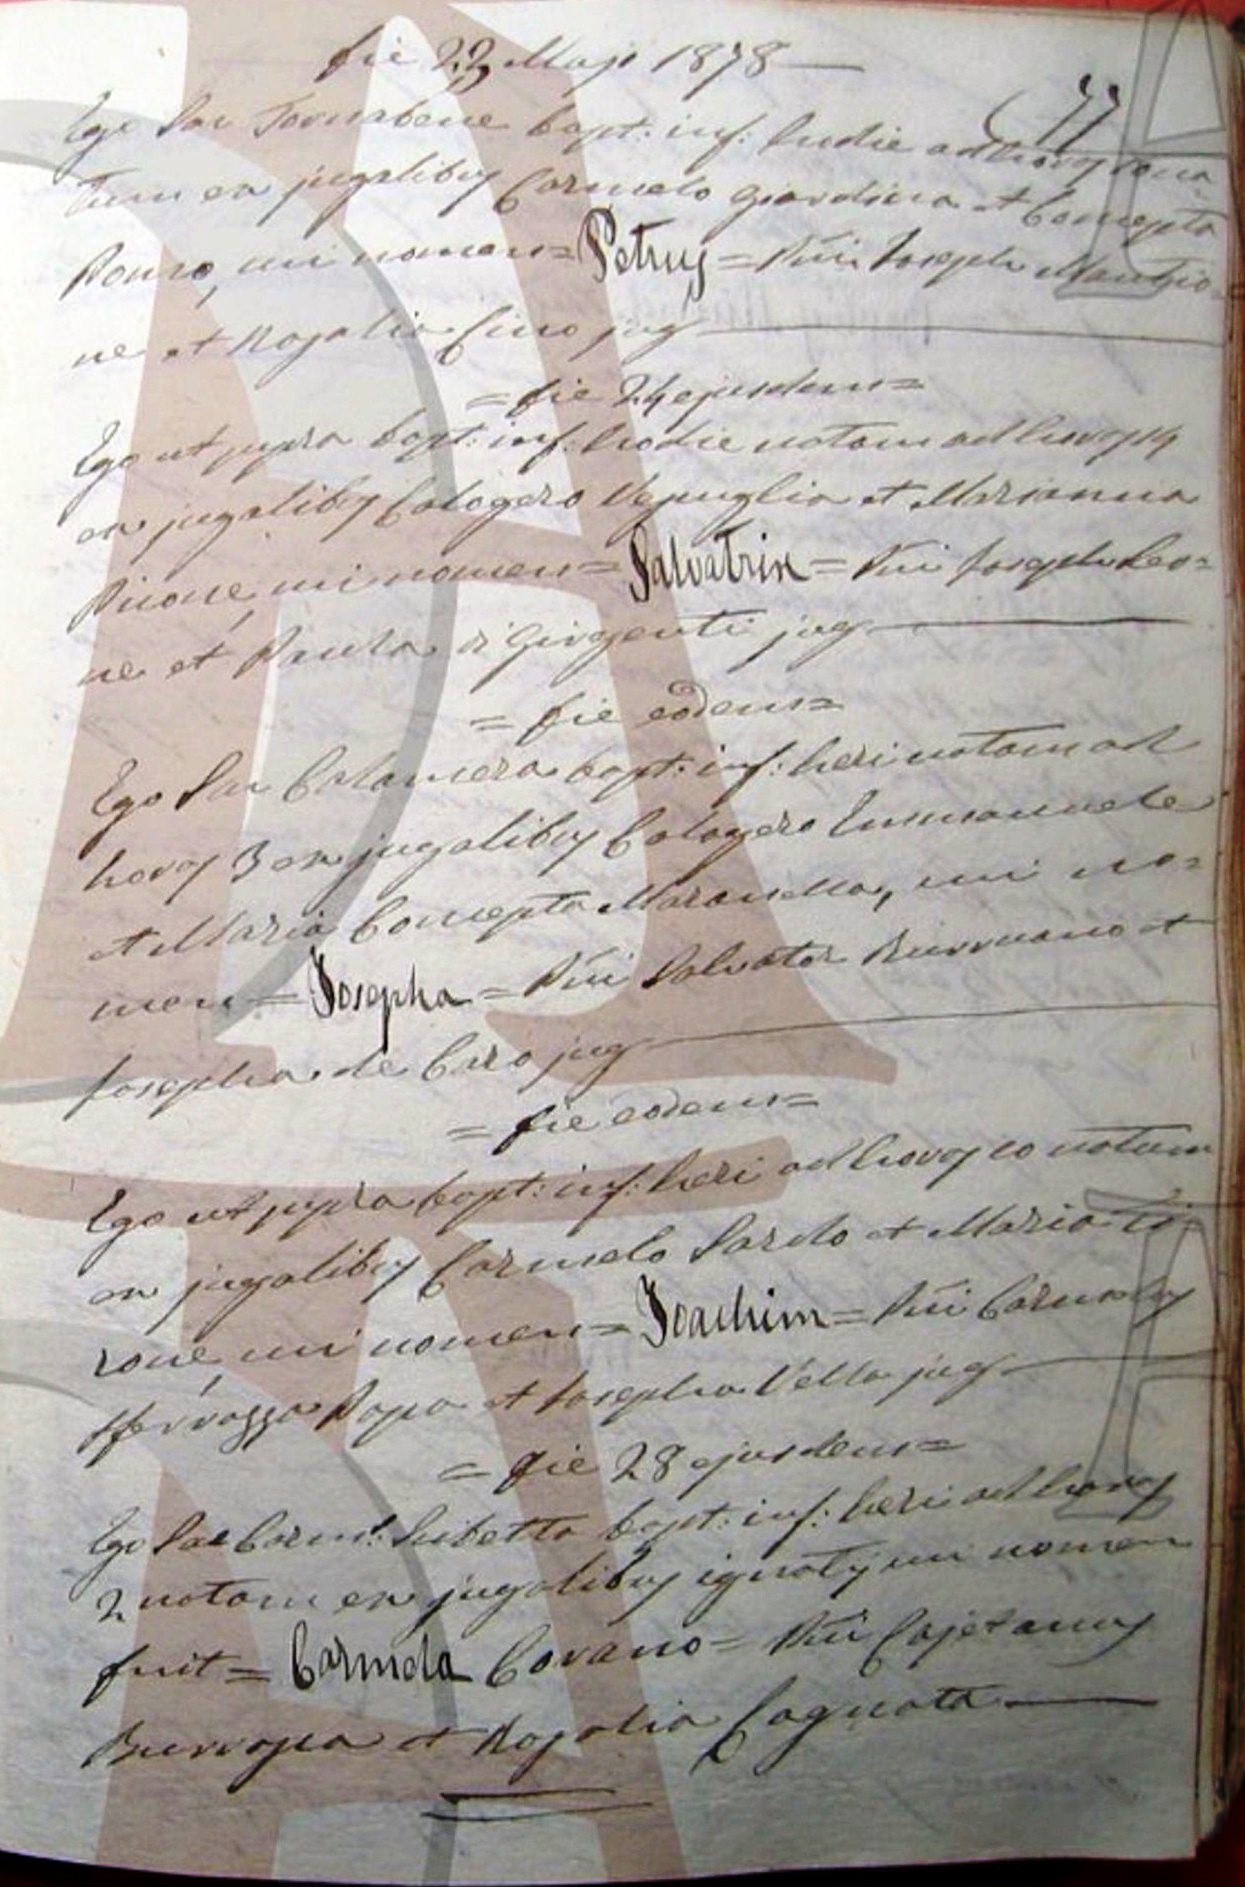 Die 22 Maji 1878
77
Ego Sac Tornabene bapt: inf: hodie ad horas
tum ex jugalibus Carmelo Giardina et Concepta
cui nomen = Petrus = P̃ni Joseph Mangio
ne et Rosalia Cino jug
= Die 24 ejusdem =
Ego ut supra bapt: inf: hodie natam ad horas 14
ex jugalibus Calogero Vepuglia et Marianna
Pirone, cui nomen = Salvatrix = P̃ni Joseph Leo=
ne et Paula di Girgenti jug
= Die eodem =
Ego Sac Calamera bapt: inf: heri natam ad
horas 3 ex jugalibus Calogero Emmanuele
et Maria Concepta Maranella, cui no=
men = Josepha = P̃ni Salvator Burruano et
Josepha de Caro jug
= Die eodem =
Ego ut supra bapt: inf: heri ad horas 10 natum
ex jugalibus Carmelo Sardo et Maria Ti
rone, cui nomen = Joachim = P̃ni Carmelus
Sferrazza Papa et Josepha Vella jug
= Die 28 ejusdem =
Ego Sac Carm: bapt: inf: heri ad horas
2 natam ex jugalibus ignotis cui nomen
fuit = Carmela Covano = P̃ni Cajetanus
et Rosalia Cagnata